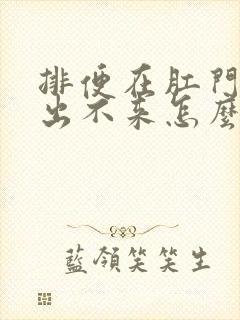 排便在肛門
出不来怎麼
藍領笑笑生